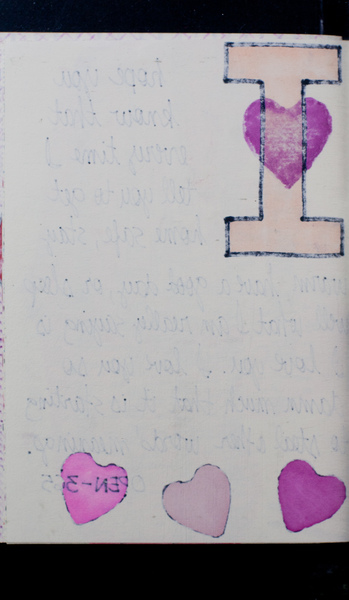 I hope you
know that
every time I
tell you to get
home safe, stay
warm, have a good day, or sleep
well what I am really saying is
I love you. I love you so
damn much that it is starting
to steal other words' meanings.
OPEN-365